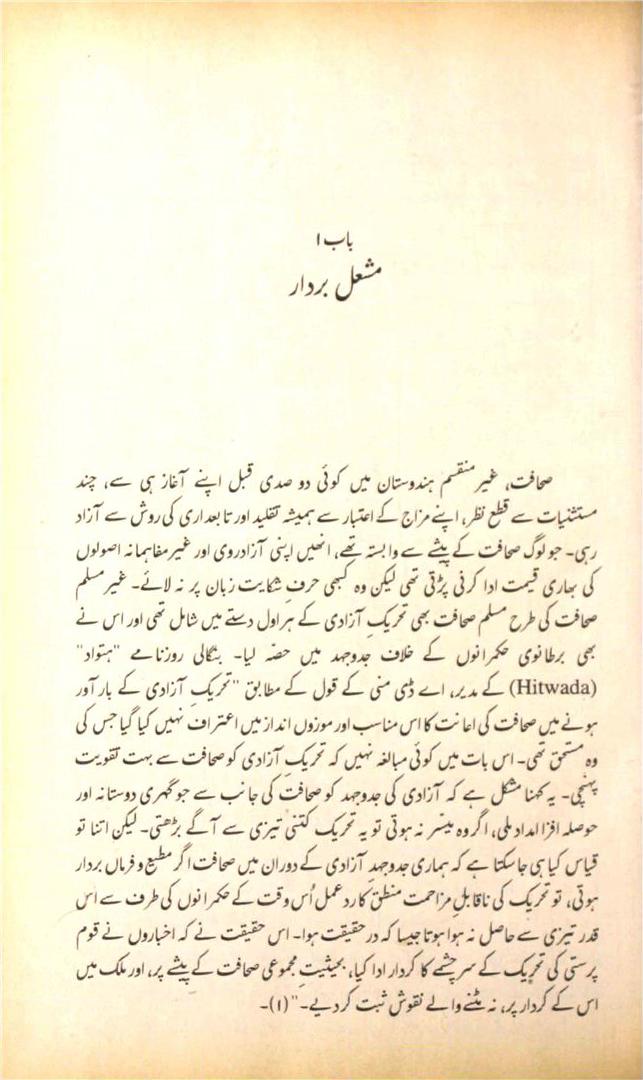 باب ۱
مشعل بردار
صحافت، غیر منقسم ہندوستان میں کوئی دو صدی قبل اپنے آغاز ہی سے، چند
مستثنیات سے قطع نظر، اپنے مزاج کے اعتبار سے ہمیشہ تقلید اور تابعداری کی روش سے آزاد
رہی۔ جو لوگ صحافت کے پیشے سے وابستہ تھے، انھیں اپنی آزاد روی اور غیر مفاہمانہ اصولوں
کی بھاری قیمت ادا کرنی پڑتی تھی لیکن وہ کبھی حرفِ شکایت زبان پر نہ لائے۔ غیر مسلم
صحافت کی طرح مسلم صحافت بھی تحریکِ آزادی کے ہراول دستے میں شامل تھی اور اس نے
بھی برطانوی حکمرانوں کے خلاف جدوجہد میں حصّہ لیا۔ بنگالی روزنامے "ہتواد"
(Hitwada) کے مدیر، اے ڈی منی کے قول کے مطابق "تحریکِ آزادی کے بار آور
ہونے میں صحافت کی اعانت کا اس مناسب اور موزوں انداز میں اعتراف نہیں کیا گیا جس کی
وہ مستحق تھی۔ اس بات میں کوئی مبالغہ نہیں کہ تحریکِ آزادی کو صحافت سے بہت تقویت
پہنچی۔ یہ کہنا مشکل ہے کہ آزادی کی جدوجہد کو صحافت کی جانب سے جو گہری دوستانہ اور
حوصلہ افزا امداد ملی، اگر وہ میسّر نہ ہوتی تو یہ تحریک کتنی تیزی سے آگے بڑھتی۔ لیکن اتنا تو
قیاس کیا ہی جا سکتا ہے کہ ہماری جدوجہدِ آزادی کے دوران میں صحافت اگر مطیع و فرماں بردار
ہوتی، تو تحریک کی ناقابلِ مزاحمت منطق کا ردعمل اُس وقت کے حکمرانوں کی طرف سے اس
قدر تیزی سے حاصل نہ ہوا ہوتا جیسا کہ درحقیقت ہوا۔ اس حقیقت نے کہ اخباروں نے قوم
پرستی کی تحریک کے سرچشمے کا کردار ادا کیا، بحیثیتِ مجموعی صحافت کے پیشے پر، اور ملک میں
اس کے کردار پر، نہ مٹنے والے نقوش ثبت کر دیے۔" (۱)۔